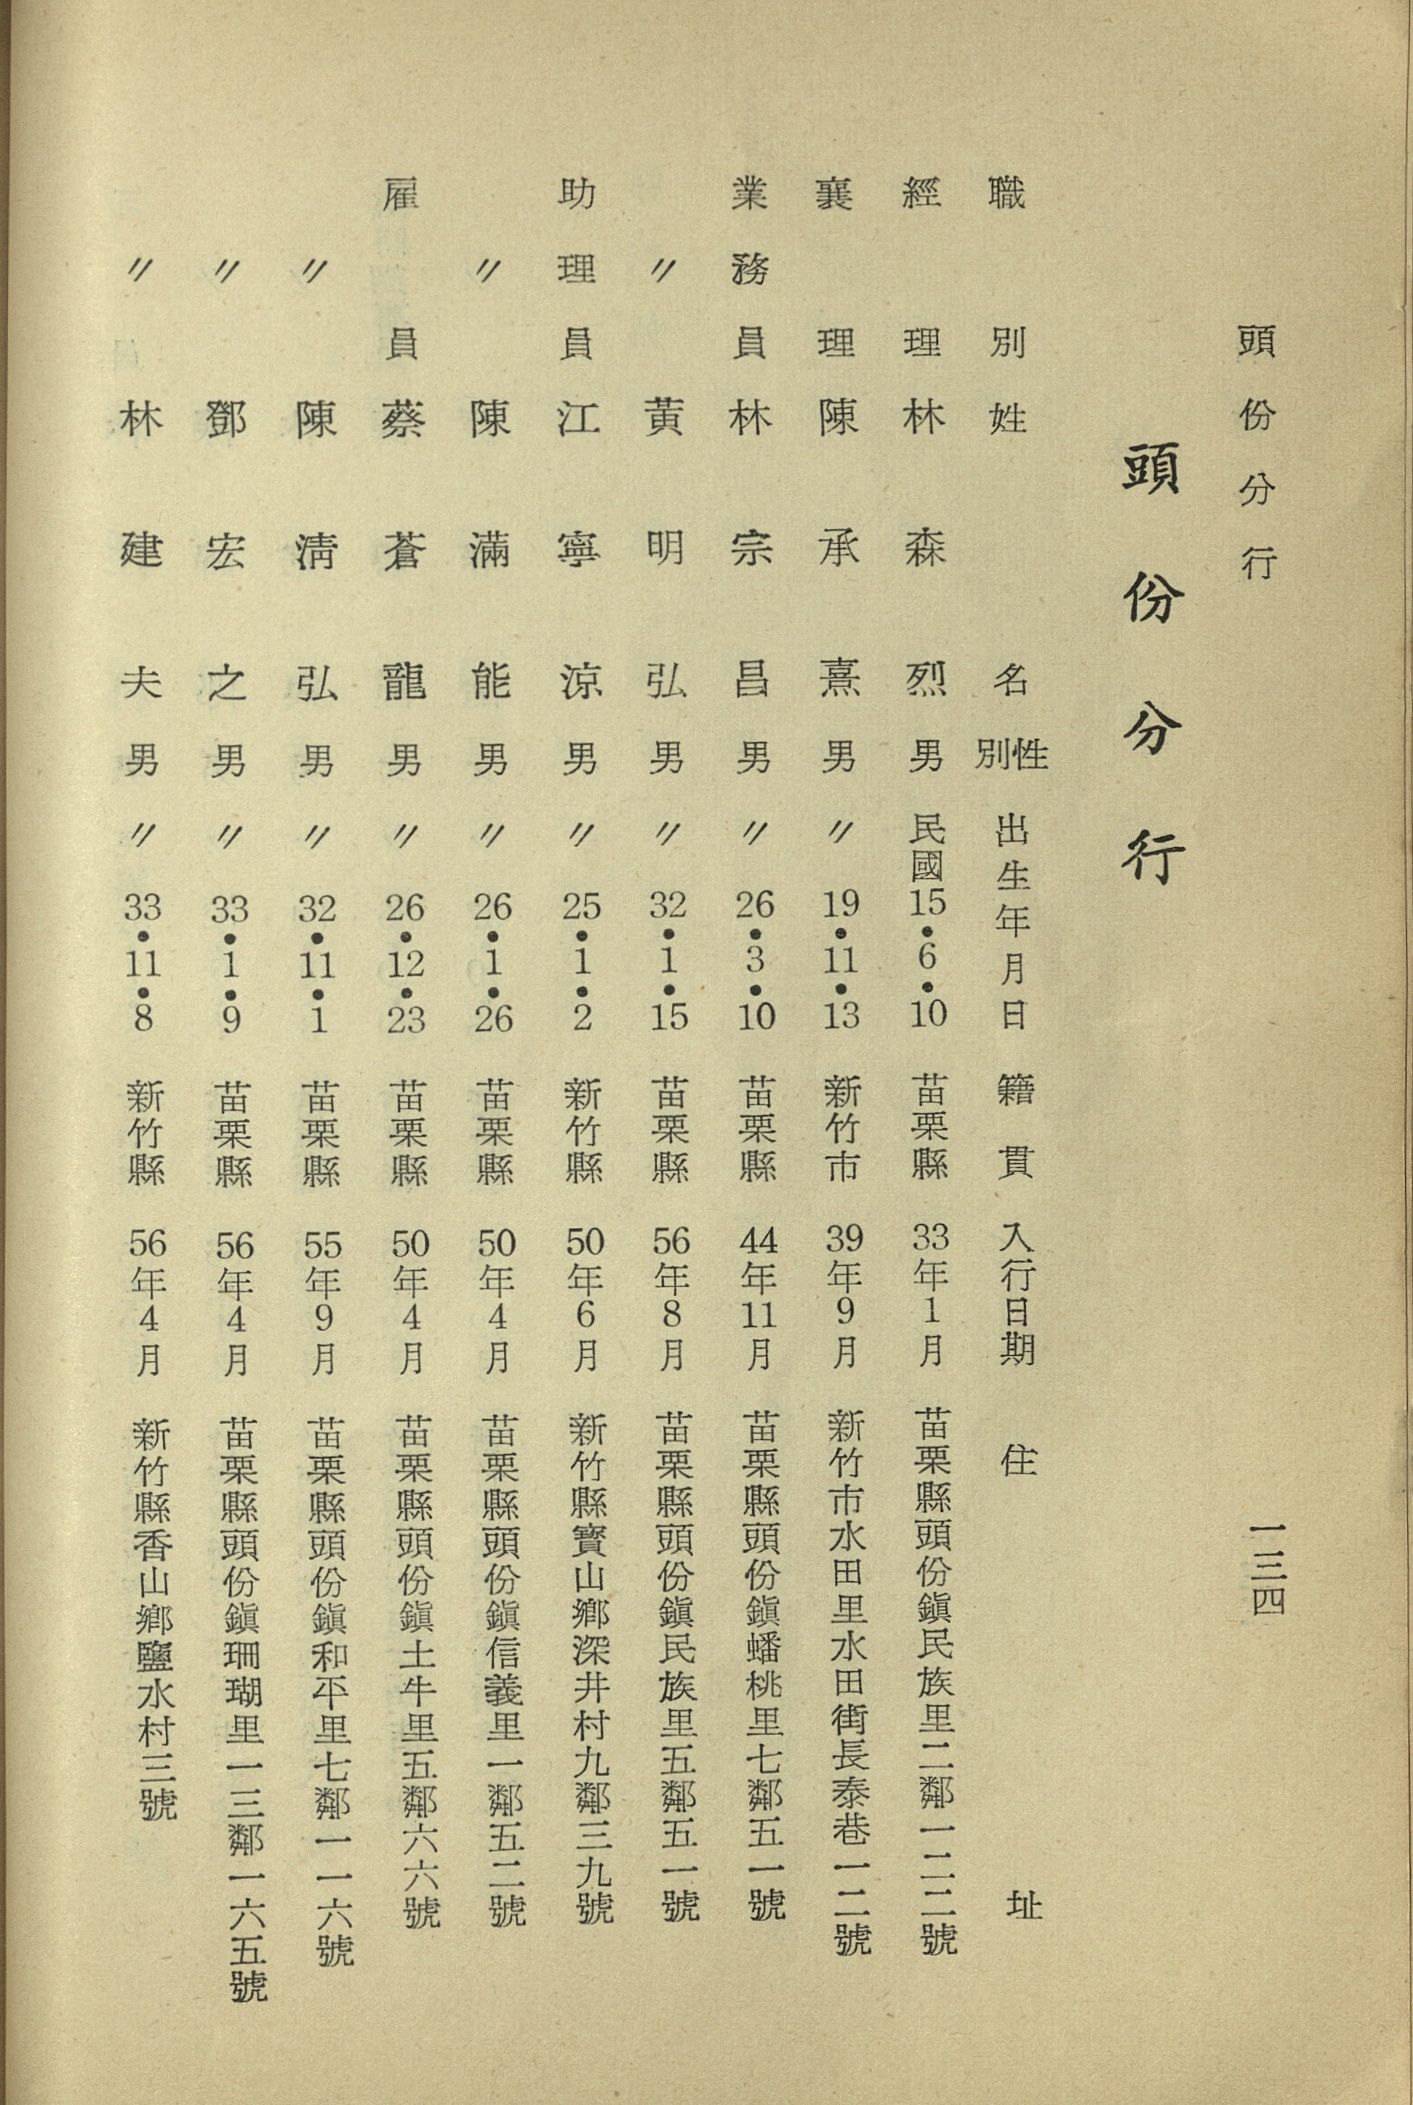 頭份分行
一三四
頭份分行
職別 姓名 性別 出生年月日 籍貫 入行日期 住址
經理 林森烈 男 民國15•6•10 苗栗縣 33年1月 苗栗縣頭份鎮民族里二鄰一二二號
襄理 陳承熹 男 〃19•11•13 新竹市 39年9月 新竹市水田里水田街長泰巷一二號
業務員 林宗昌 男 〃26•3•10 苗栗縣 44年11月 苗栗縣頭份鎮蟠桃里七鄰五一號
〃 黃明弘 男 〃32•1•15 苗栗縣 56年8月 苗栗縣頭份鎮民族里五鄰五一號
助理員 江寧涼 男 〃25•1•2 新竹縣 50年6月 新竹縣寶山鄉深井村九鄰三九號
〃 陳滿能 男 〃26•1•26 苗栗縣 50年4月 苗栗縣頭份鎮信義里一鄰五二號
雇員 蔡蒼龍 男 〃26•12•23 苗栗縣 50年4月 苗栗縣頭份鎮土牛里五鄰六六號
〃 陳淸弘 男 〃32•11•1 苗栗縣 55年9月 苗栗縣頭份鎮和平里七鄰一一六號
〃 鄧宏之 男 〃33•1•9 苗栗縣 56年4月 苗栗縣頭份鎮珊瑚里一三鄰一六五號
〃 林建夫 男 〃33•11•8 新竹縣 56年4月 新竹縣香山鄉鹽水村三號